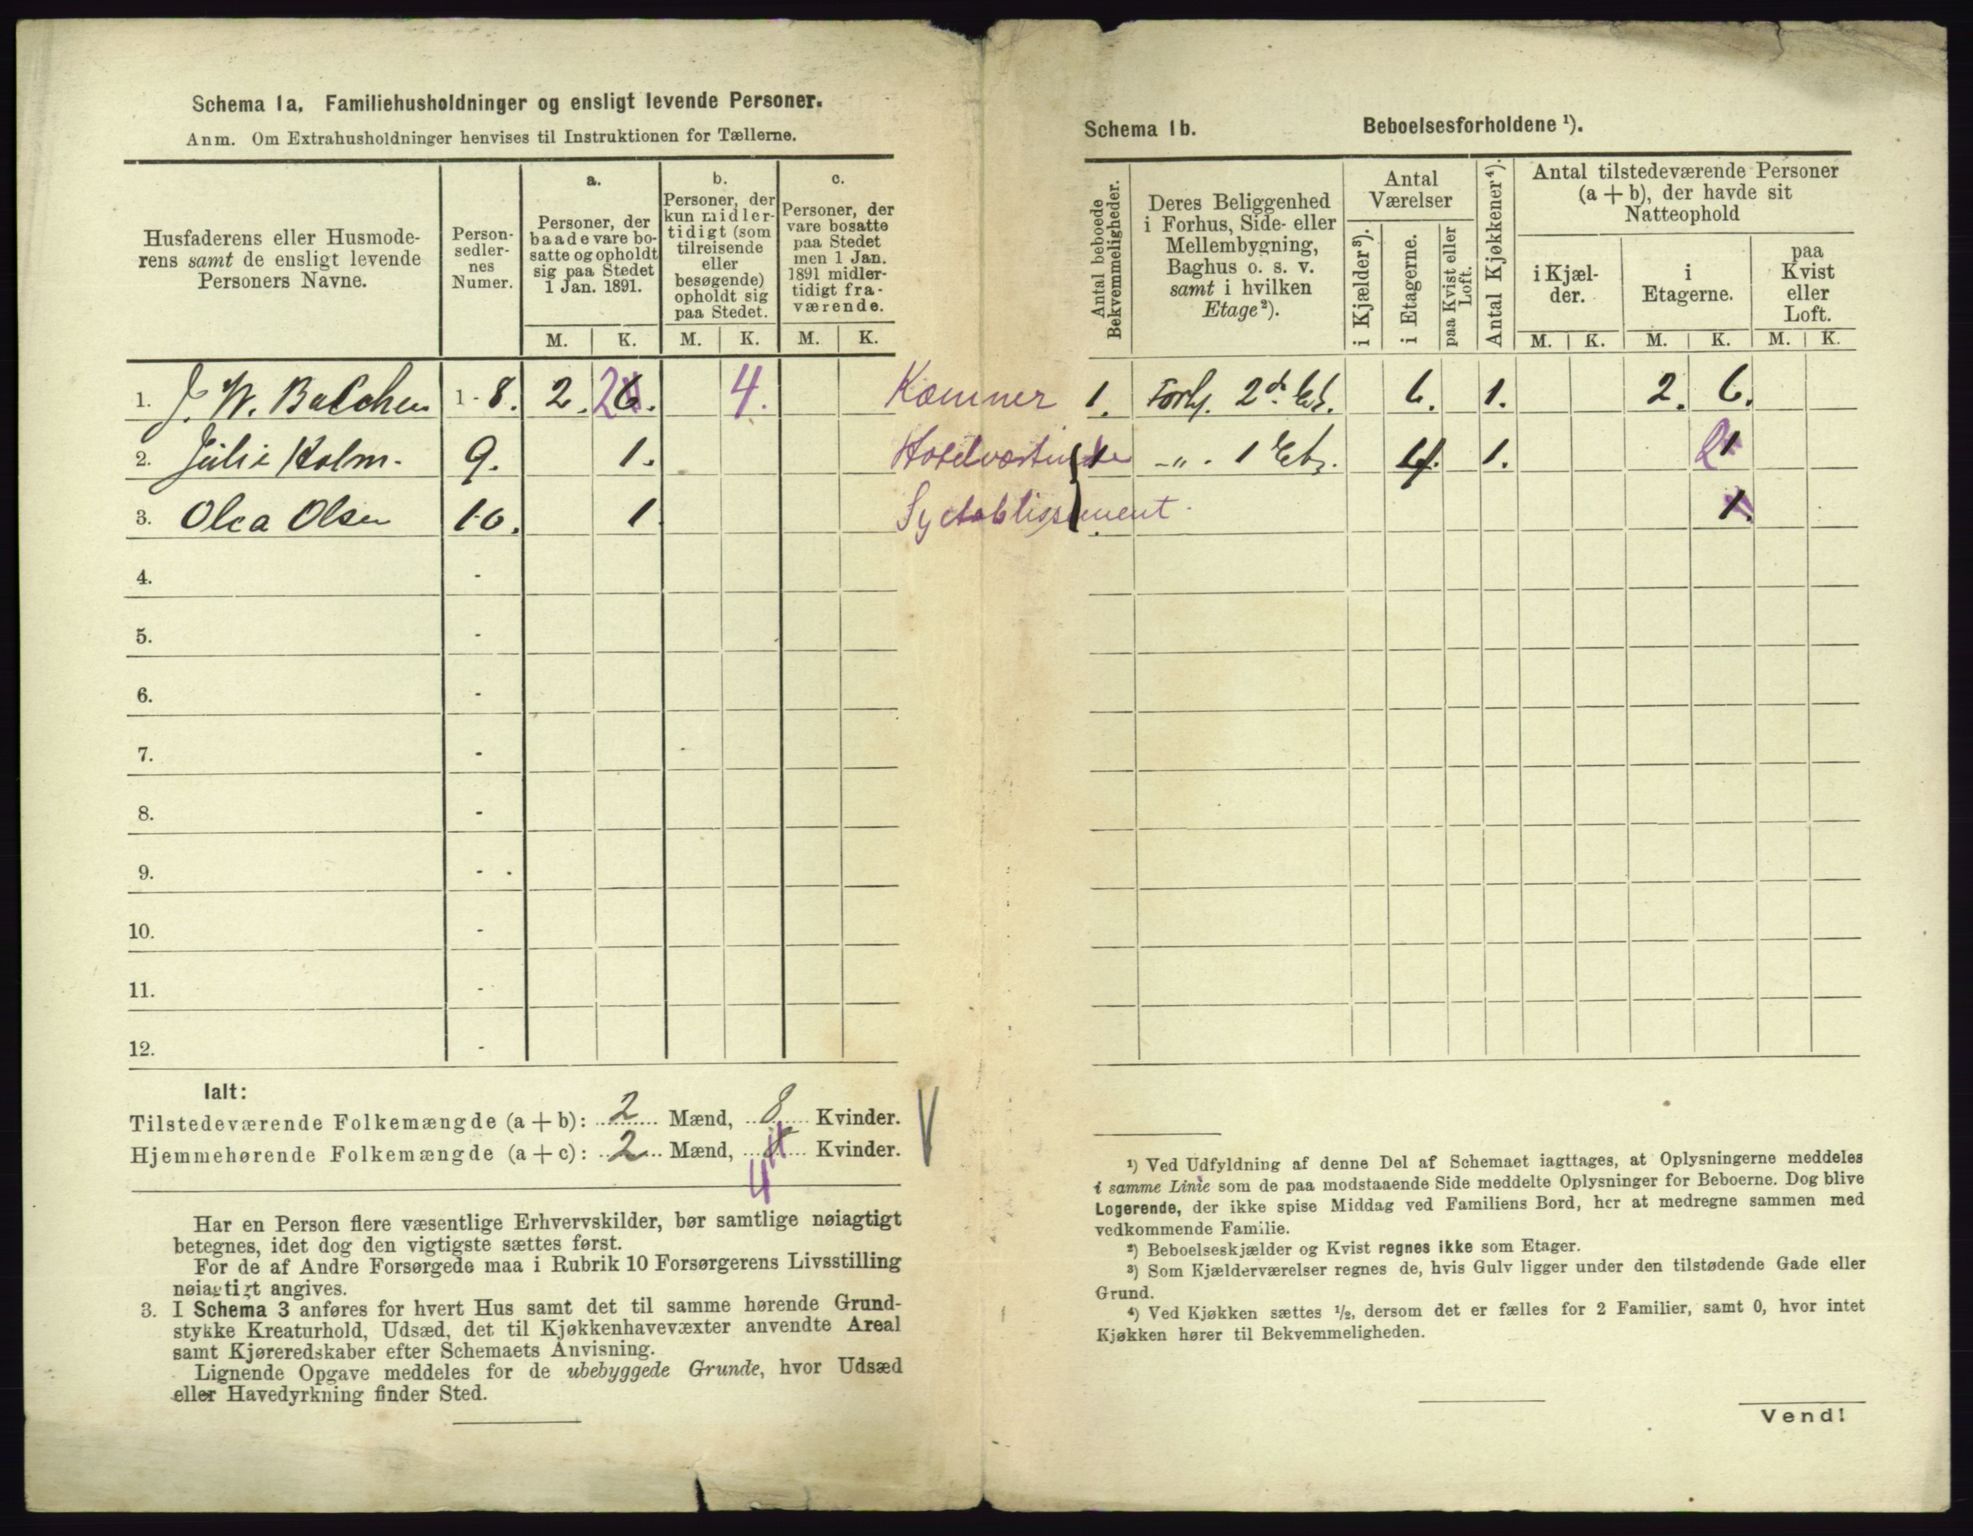 Schema 1a. Familiehusholdninger og ensligt levende Personer.
Anm. Om Extrahusholdninger henvises til Instruktionen for Tællerne.
Husfaderens eller Husmode-
rens samt de ensligt levende
Personers Navne.
Person-
sedler-
nes
Numer.
a.
Personer, der
baade vare bo-
satte og opholdt
sig paa Stedet
1 Jan. 1891.
b.
Personer, der
kun midler-
tidigt (som
tilreisende
eller
besøgende)
opholdt sig
paa Stedet.
c.
Personer, der
vare bosatte
paa Stedet
men 1 Jan.
1891 midler-
tidigt fra-
værende.
M. K. M. K. M. K.
1. J. W. Balchen 1 - 8. 2. 2 6. 4. Kæmner
2. Julie Holm. 9. 1. Hotelværtinde
3. Olea Olsen 10. 1 Syetablissement
4. -
5. -
6. -
7. -
8. -
9. - .
10. -
11. -
12. -
Ialt:
Tilstedeværende Folkemængde (a + b): 2 Mænd, 8 Kvinder.
Hjemmehørende Folkemængde (a + c): 2 Mænd, 8 Kvinder.
4
Har en Person flere væsentlige Erhvervskilder, bør samtlige nøiagtigt
betegnes, idet dog den vigtigste sættes først.
For de af Andre Forsørgede maa i Rubrik 10 Forsørgerens Livsstilling
nøiagtigt angives.
3. I Schema 3 anføres for hvert Hus samt det til samme hørende Grund-
stykke Kreaturhold, Udsæd, det til Kjøkkenhavevæxter anvendte Areal
samt Kjøreredskaber efter Schemaets Anvisning.
Lignende Opgave meddeles for de ubebyggede Grunde, hvor Udsæd
eller Havedyrkning finder Sted.
Schema 1b. Beboelsesforholdene ¹).
Antal beboede
Bekvemmeligheder.
Deres Beliggenhed
i Forhus, Side- eller
Mellembygning,
Baghus o. s. v.
samt i hvilken
Etage ²).
Antal
Værelser
i Kjælder ³).
i Etagerne.
paa Kvist eller
Loft.
Antal Kjøkkener ⁴).
Antal tilstedeværende Personer
(a + b), der havde sit
Natteophold
i Kjæl-
der.
i
Etagerne.
paa
Kvist
eller
Loft.
M. K. M. K. M. K.
1. Forh. 2d. Et. 6. 1. 2. 6.
1 - „ - 1 Et. 4. 1. 2 1
1.
¹) Ved Udfyldning af denne Del af Schemaet iagttages, at Oplysningerne meddeles
i samme Linie som de paa modstaaende Side meddelte Oplysninger for Beboerne. Dog blive
Logerende, der ikke spise Middag ved Familiens Bord, her at medregne sammen med
vedkommende Familie.
²) Beboelseskjælder og Kvist regnes ikke som Etager.
³) Som Kjælderværelser regnes de, hvis Gulv ligger under den tilstødende Gade eller
Grund.
⁴) Ved Kjøkken sættes ½, dersom det er fælles for 2 Familier, samt 0, hvor intet
Kjøkken hører til Bekvemmeligheden.
Vend!